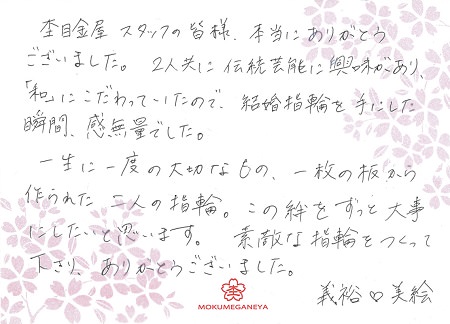 杢目金屋 スタッフの皆様、本当にありがとう
ございました。 2人共に伝統芸能に興味があり、
「和」にこだわっていたので、結婚指輪を手にした
瞬間、感無量でした。
一生に一度の大切なもの、一枚の板から
作られた二人の指輪。この絆をずっと大事
にしたいと思います。 素敵な指輪をつくって
下さり、ありがとうございました。
義裕♡美絵
MOKUMEGANEYA